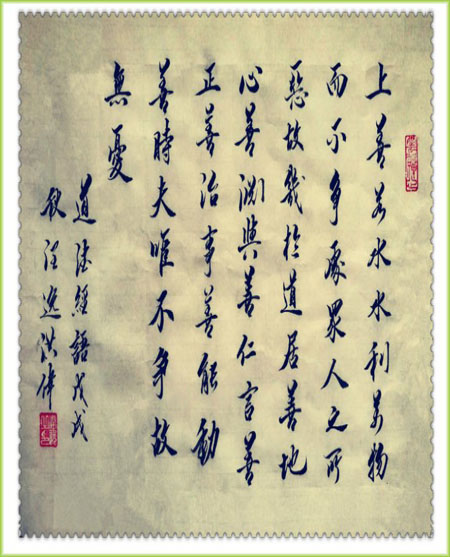 上善若水水利萬物
而不争處衆人之所
惡故幾於道居善地
心善渊與善仁言善
正善治事善能動
善時夫唯不争故
無憂
道德經語戊戌
秋汪逸洪